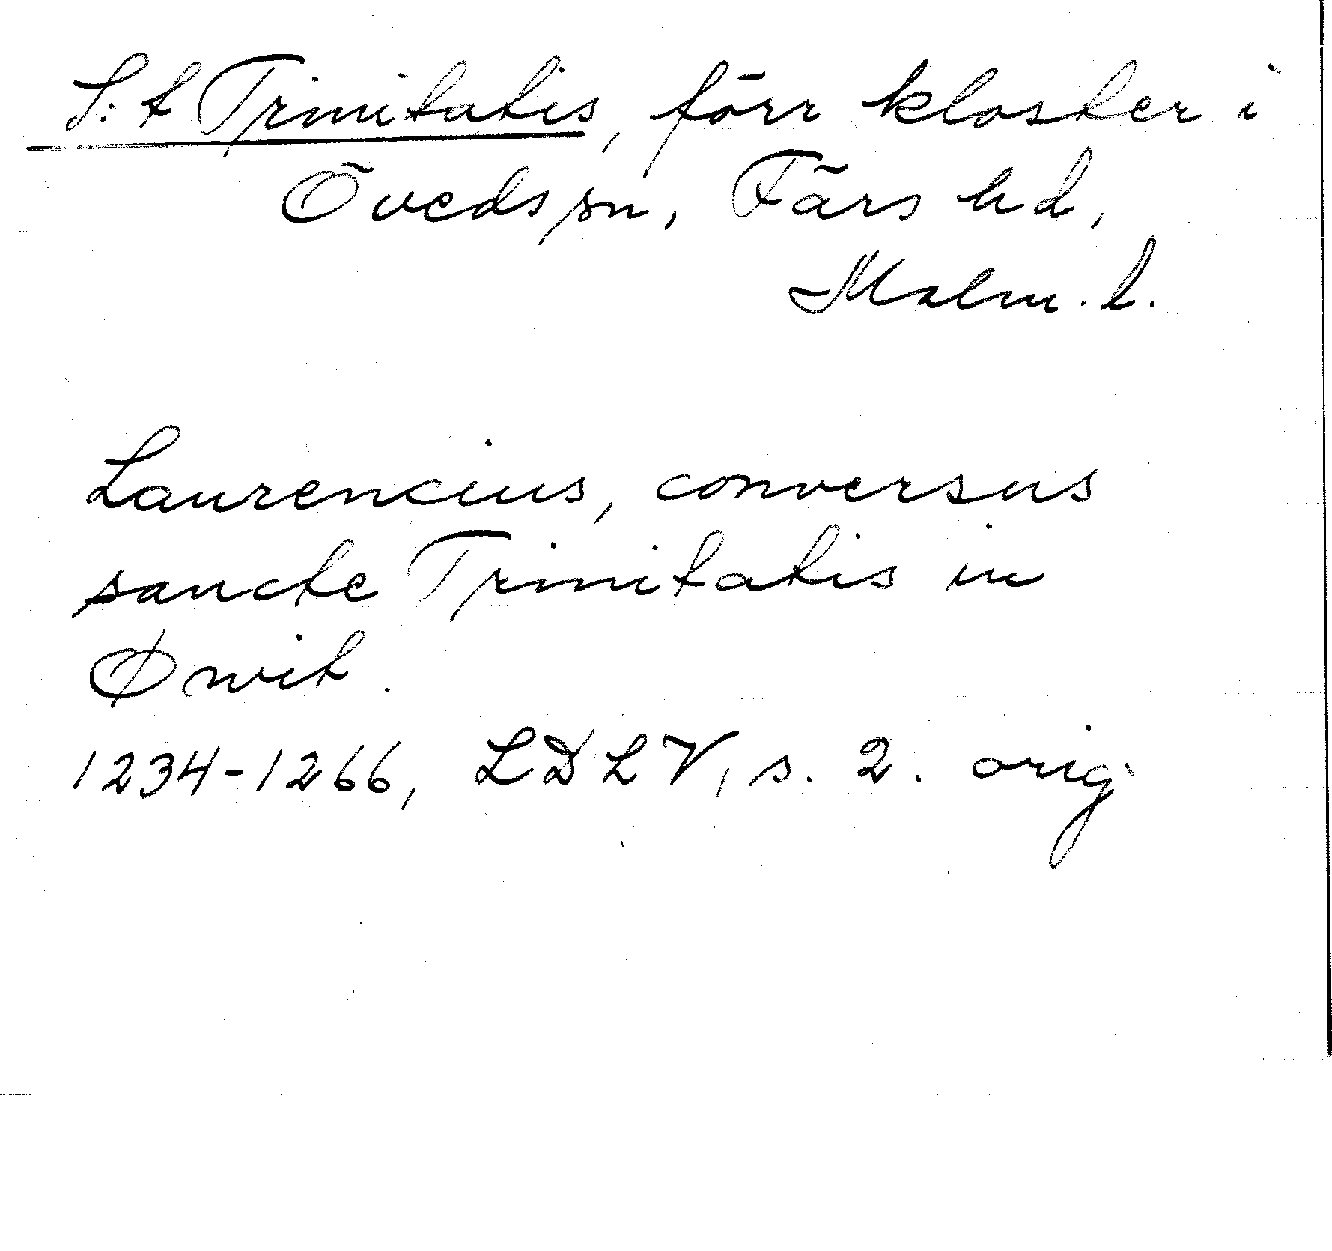 S:t Trinitatis, förr kloster i
Öveds sn, Färs hd,
Malm. l.
Laurencius, conversus
sancte Trinitatis in
Øwit.
1234-1266, LDLV, s. 2. orig